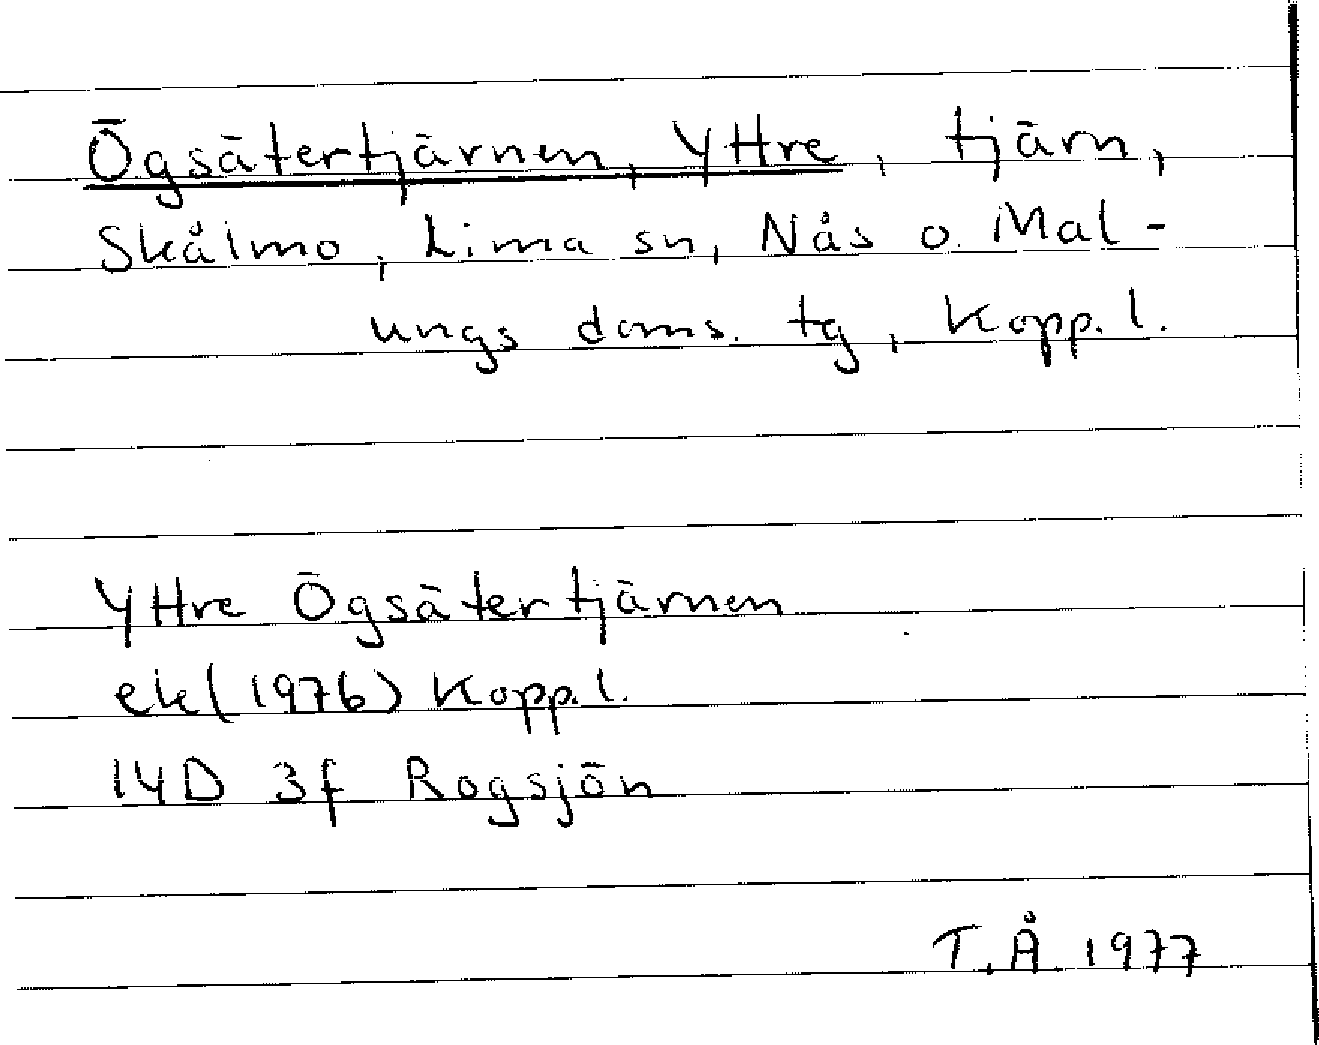 Ögsätertjärnen, Yttre, tjärn,
Skålmo, Lima sn, Nås o. Mal-
ungs doms. tg, Kopp. l.
Yttre Ögsätertjärnen
ek (1976) Kopp. l.
14D 3f Rogsjön
T.Å. 1977